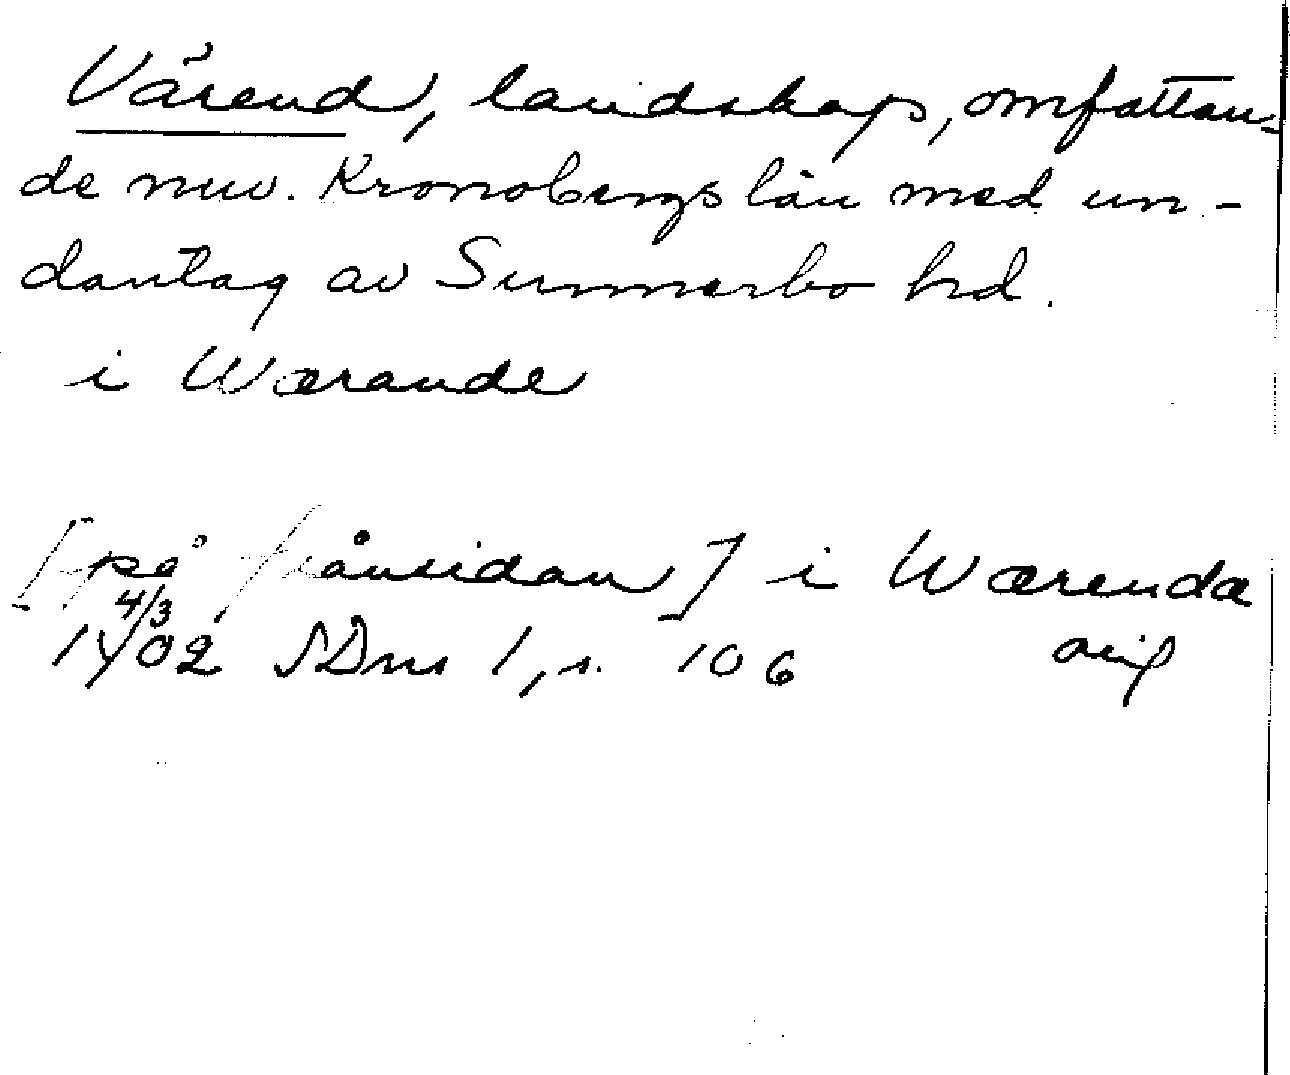 Värend, landskap, omfattan-
de nuv. Kronobergs län med un-
dantag av Sunnerbo hd.
i Wærande
[på frånsidan] i Wærenda
4/3
1402 SDns 1, s. 106 orig